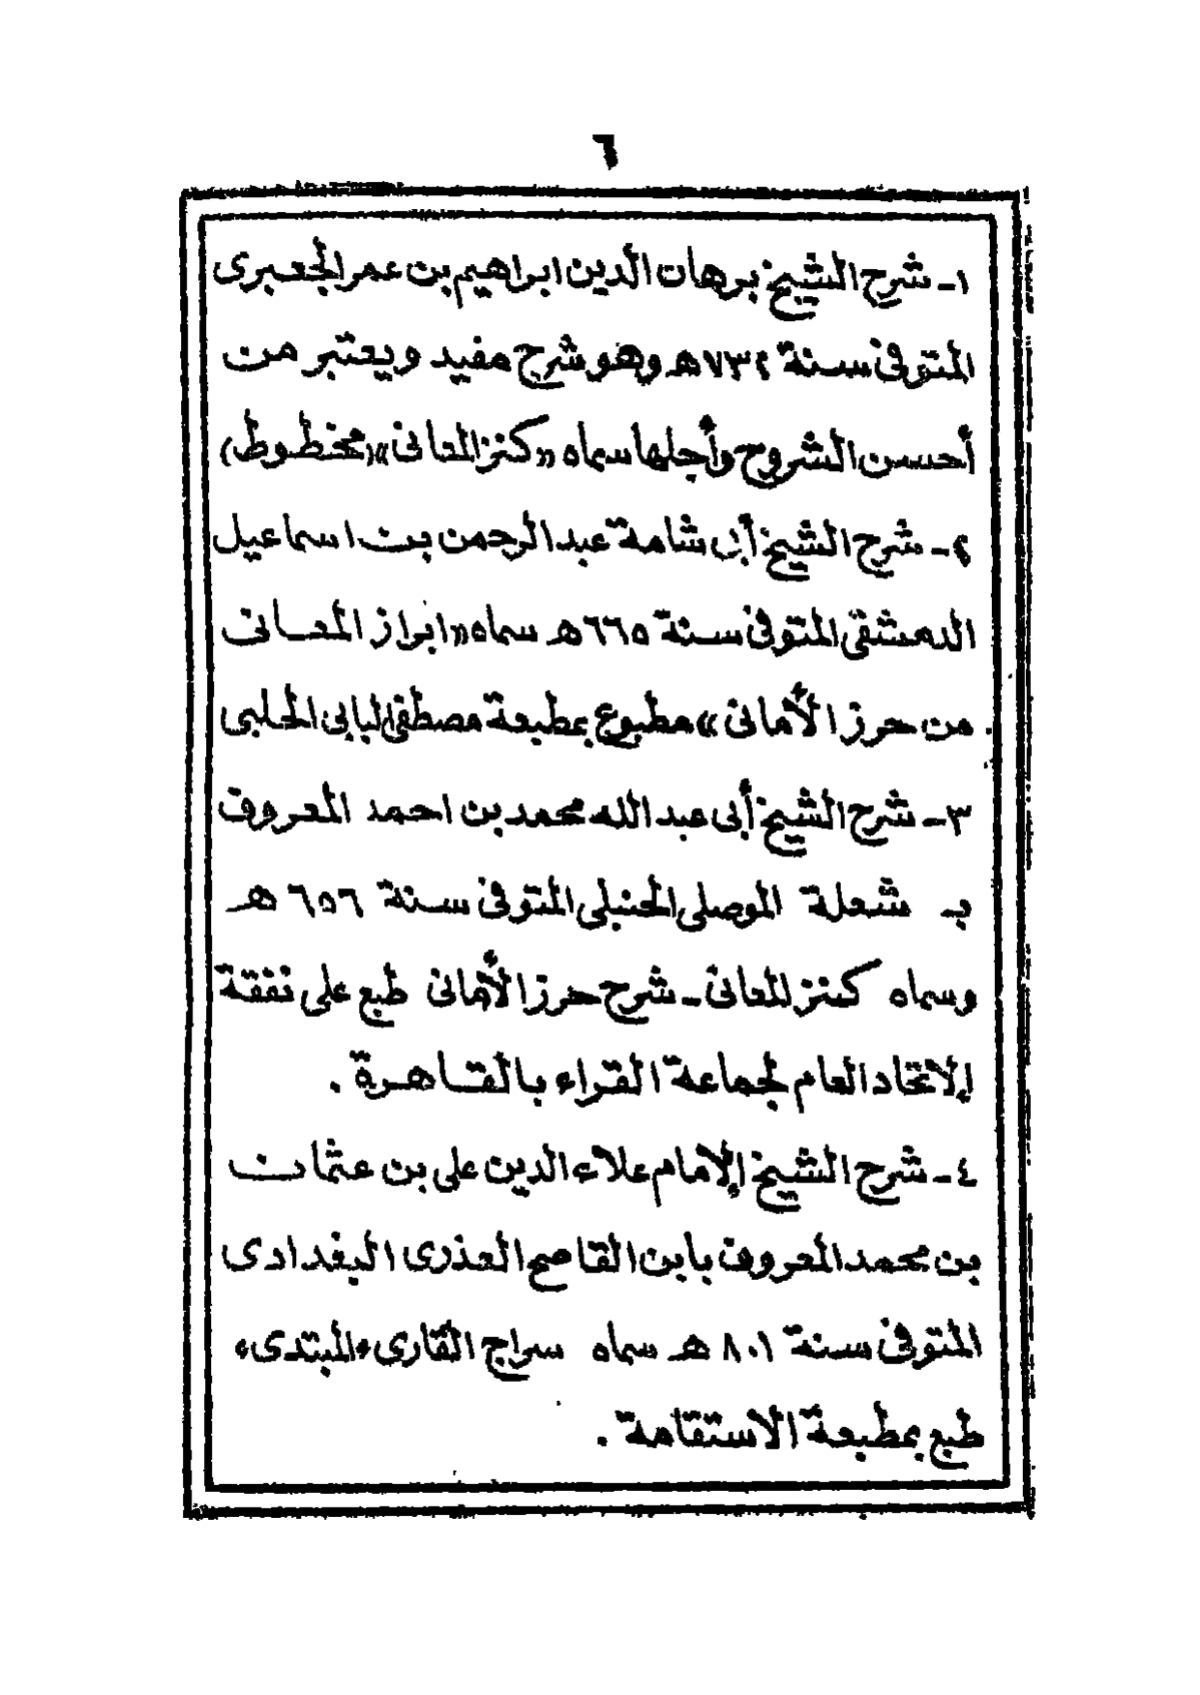 ٦
١- شرح الشيخ برهان الدين ابراهيم بن عمر الجعبرى
المتوفى سنة ٧٣٢ هـ وهو شرح مفيد ويعتبر من
أحسن الشروح وأجلها سماه «كنز المعانى» (مخطوط)
٢- شرح الشيخ أبى شامة عبد الرحمن بن اسماعيل
الدمشقى المتوفى سنة ٦٦٥ هـ سماه «ابراز المعانى
من حرز الأمانى» مطبوع بمطبعة مصطفى البابى الحلبى
٣- شرح الشيخ أبى عبد الله محمد بن احمد المعروف
بـ شعلة الموصلى الحنبلى المتوفى سنة ٦٥٦ هـ
وسماه كنز المعانى - شرح حرز الأمانى طبع على نفقة
الإتحاد العام لجماعة القراء بالقاهرة .
٤- شرح الشيخ الإمام علاء الدين على بن عثمان
بن محمد المعروف بابن القاصح العذرى البغدادى
المتوفى سنة ٨٠١ هـ سماه سراج القارىء المبتدىء
طبع بمطبعة الاستقامة .